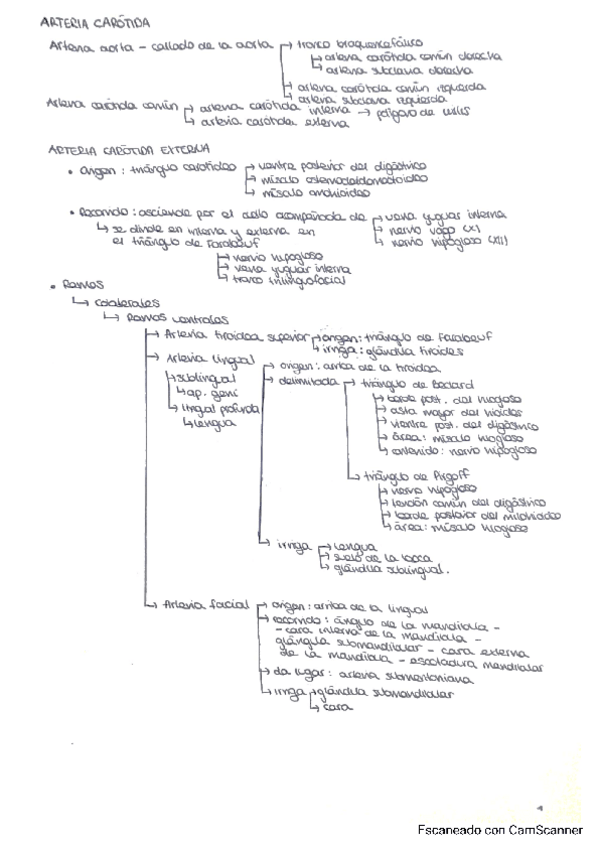 ARTERIA CARÓTIDA
Arteria aorta - callado de la aorta → tronco braquiocefálico
→ arteria carótida común derecha
→ arteria subclavia derecha
→ arteria carótida común izquierda
→ arteria subclavia izquierda
Arteria carótida común → arteria carótida interna → polígono de
→ arteria carótida externa
ARTERIA CARÓTIDA EXTERNA
• origen: triángulo carotídeo → vientre posterior del digástrico
→ músculo esternocleidomastoideo
→ músculo omohioideo
• Recorrido: asciende por el cuello acompañada de → vena yugular interna
→ se divide en interna y externa en → nervio vago (X)
el triángulo de Farabeuf → nervio hipogloso (XII)
→ nervio hipogloso
→ vena yugular interna
→ tronco tirolinguofacial
• Ramos
→ colaterales
→ Ramos ventrales
→ Arteria tiroidea superior → origen: triángulo de Farabeuf
→ irriga: glándula tiroides
→ Arteria lingual → origen: arriba de la tiroidea
→ sublingual → delimitada → triángulo de Beclard
→ ap. geni → borde post. del hiogloso
→ lingual profunda → asta mayor del hioides
→ lengua → vientre post. del digástrico
→ área: músculo hiogloso
→ contenido: nervio hipogloso
→ triángulo de Pirgoff
→ nervio hipogloso
→ tendón común del digástrico
→ borde posterior del milohioideo
→ área: músculo hiogloso
→ irriga → lengua
→ suelo de la boca
→ glándula sublingual.
→ Arteria facial → origen: arriba de la lingual
→ recorrido: ángulo de la mandíbula -
- cara interna de la mandíbula -
glándula submandibular - cara externa
de la mandíbula - escotadura mandibular
→ da lugar: arteria submentoniana
→ irriga → glándula submandibular
→ cara
1
Escaneado con CamScanner